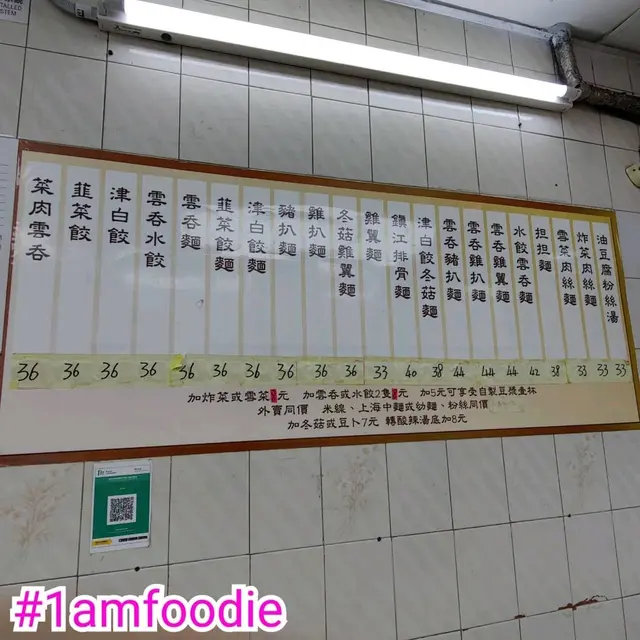 菜肉雲吞
韮菜餃
津白餃
雲吞水餃
雲吞麵
韮菜餃麵
津白餃麵
豬扒麵
雞扒麵
冬菇雞翼麵
雞翼麵
鎮江排骨麵
津白餃冬菇麵
雲吞豬扒麵
雲吞雞扒麵
雲吞雞翼麵
水餃雲吞麵
担担麵
雪菜肉絲麵
炸菜肉絲麵
油豆腐粉絲湯
36 36 36 36 36 36 36 36 36 36 33 40 38 44 44 44 42 38 33 33 33
加炸菜或雪菜元 加雲吞或水餃2隻元 加5元可享受自製豆漿壹杯
外賣同價 米線、上海中麵或幼麵、粉絲同價
加冬菇或豆卜7元 轉酸辣湯底加8元
#1amfoodie